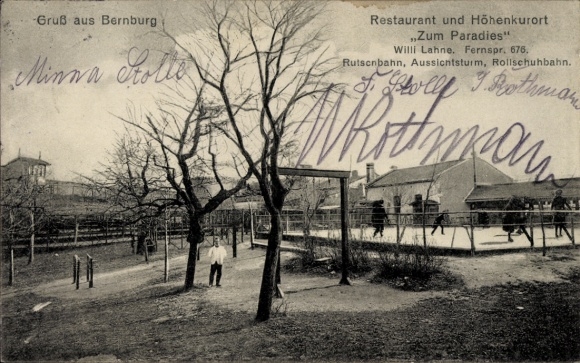 Gruß aus Bernburg
Restaurant und Höhenkurort
„Zum Paradies“
Willi Lahne. Fernspr. 676.
Rutschbahn, Aussichtsturm, Rollschuhbahn.
Minna Stolle
F. Stolle J. Rothmann
W Rothmann